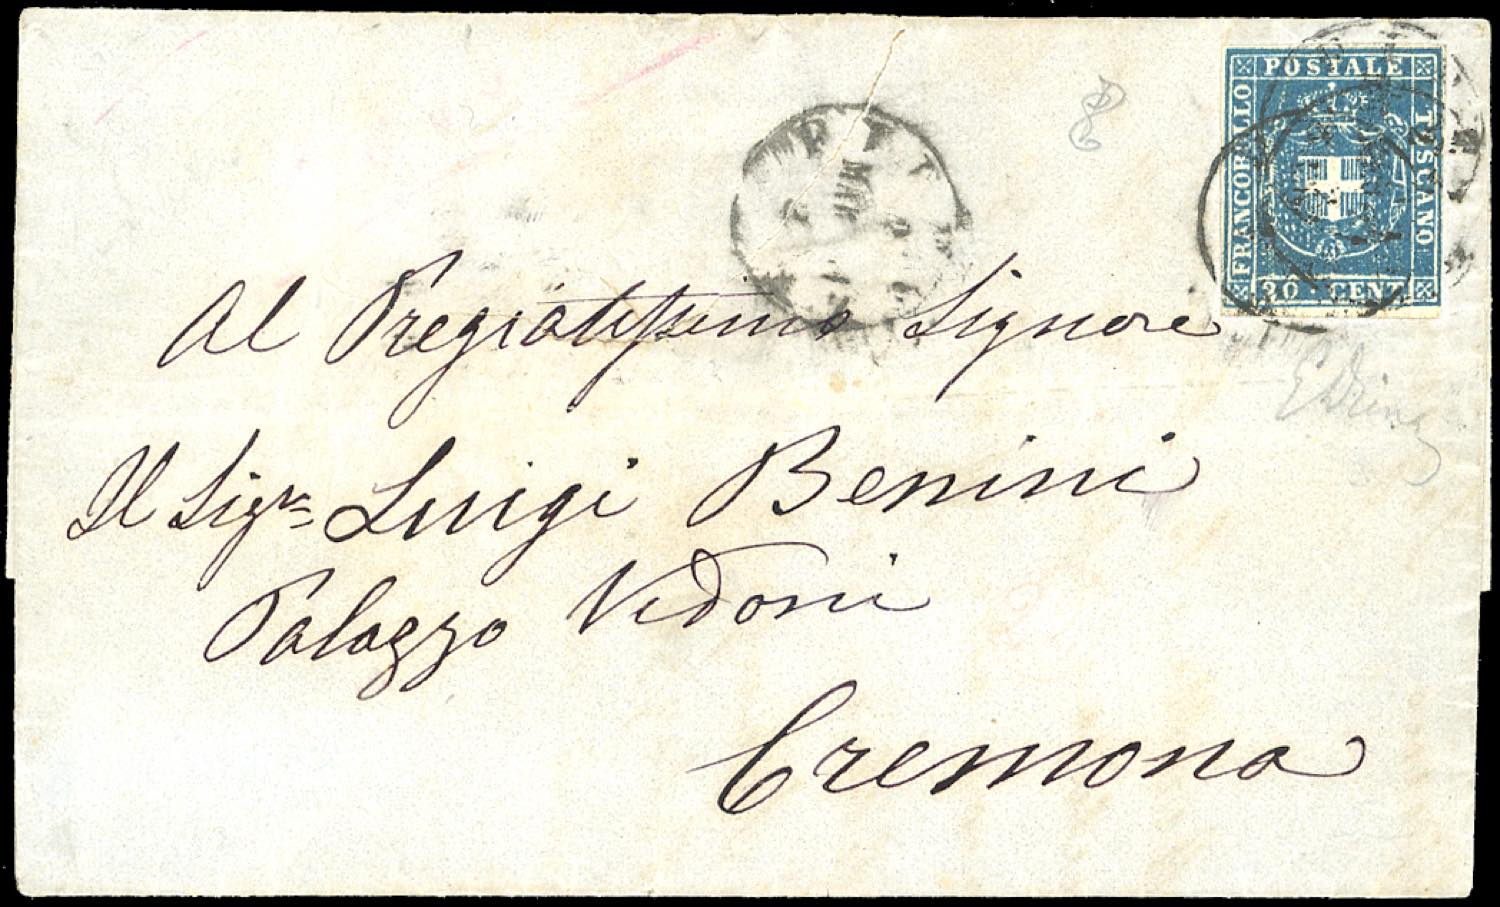 FRANCOBOLLO
POSTALE
TOSCANO
20 · CENT
MAR
Al Pregiatissimo Signore
Il Sigre Luigi Benini
Palazzo Vidoni
Cremona